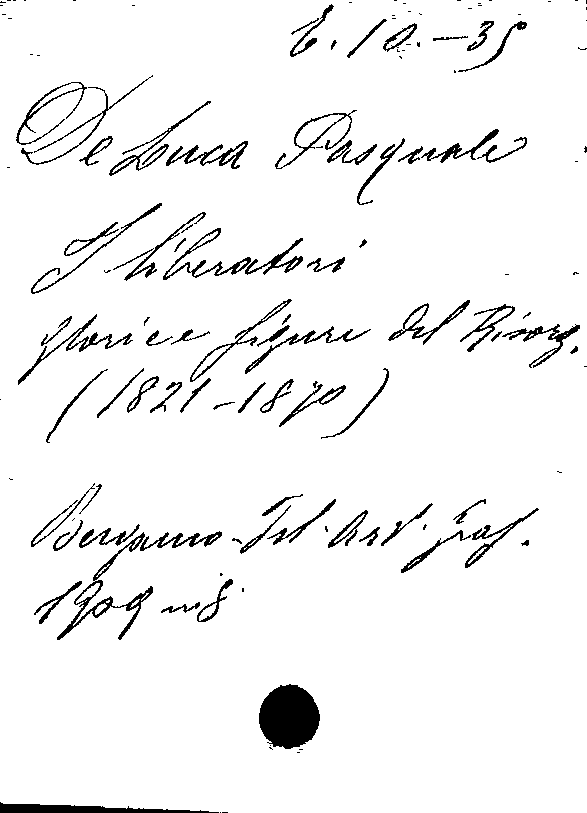 E. 10.-35
De Luca Pasquale
I liberatori
glorie e figure del Risorg.
(1821-1870)
Bergamo - Ist. Art. Graf.
1909 in 8°